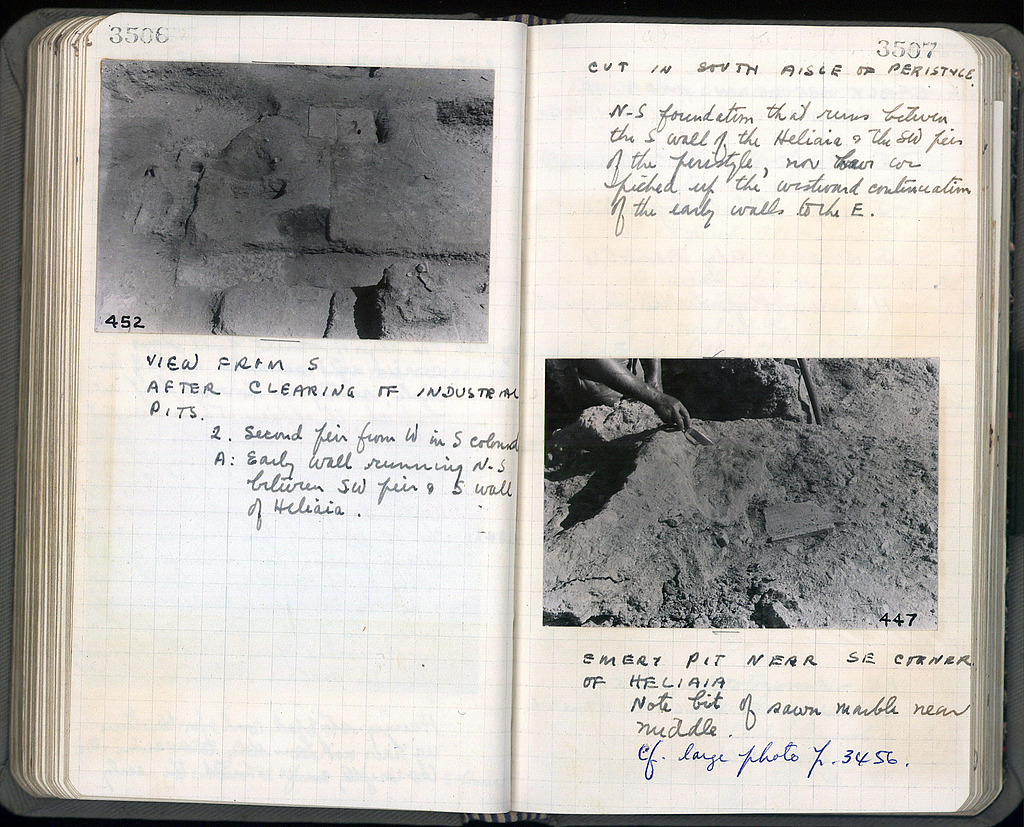 3506
2.
A
452
VIEW FROM S
AFTER CLEARING OF INDUSTRIAL
PITS.
2. Second pier from W in S colonnd
A: Early wall running N-S
between SW pier & S wall
of Heliaia.
3507
CUT IN SOUTH AISLE OF PERISTYLE
N-S foundation that runs between
the S wall of the Heliaia & the SW pier
of the peristyle, nor have we
picked up the westward continuation
of the early walls to the E.
447
EMERY PIT NEAR SE CORNER
OF HELIAIA
Note bit of sawn marble near
middle.
Cf. large photo p. 3456.